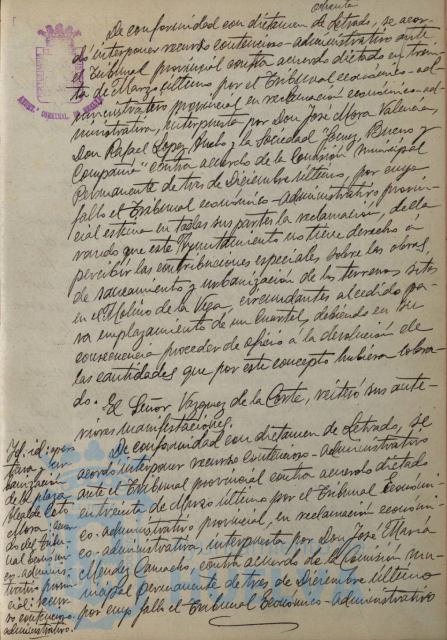 De conformidad con dictamen de Letrado, se acor-
dó interponer recurso contencioso-administrativo ante
el Tribunal provincial contra acuerdo dictado en trein-
ta de Marzo último, por el Tribunal económico-ad-
ministrativo provincial en reclamación económico-ad-
ministrativa, interpuesta por Don José Mora Valencia,
Don Rafael Lopez y la Sociedad "Gomez, Bueno y
Compañía" contra acuerdo de la Comisión municipal
Permanente de tres de Diciembre último, por cuyo
fallo el Tribunal económico-administrativo provin-
cial estima en todas sus partes la reclamación, decla-
rando que este Ayuntamiento no tiene derecho á
percibir las contribuciones especiales sobre las obras
de saneamiento y urbanización de los terrenos sitos
en el Molino de la Vega circundantes al cedido pa-
ra emplazamiento de un Cuartel, debiendo en su
consecuencia proceder de oficio á la devolución de
las cantidades que por este concepto hubiera cobra-
do. El Señor Vazquez de la Corte, reiteró sus ante-
riores manifestaciones.
De conformidad con dictamen de Letrado, se
acordó interponer recurso contencioso-administrativo
ante el Tribunal provincial contra acuerdo dictado
en treinta de Marzo último por el Tribunal Económi-
co-administrativo provincial, en reclamación económi-
co-administrativa, interpuesta por Don José María
Mendez Camacho, contra acuerdo de la Comisión mu-
nicipal permanente de tres de Diciembre último
por cuyo fallo el Tribunal Económico-administrativo
Id. id:
de la plaza
Mora:
do del Tribu-
nal Económi-
co-adminis-
trativo provin-
cial: recur-
so contencioso
administrativo.